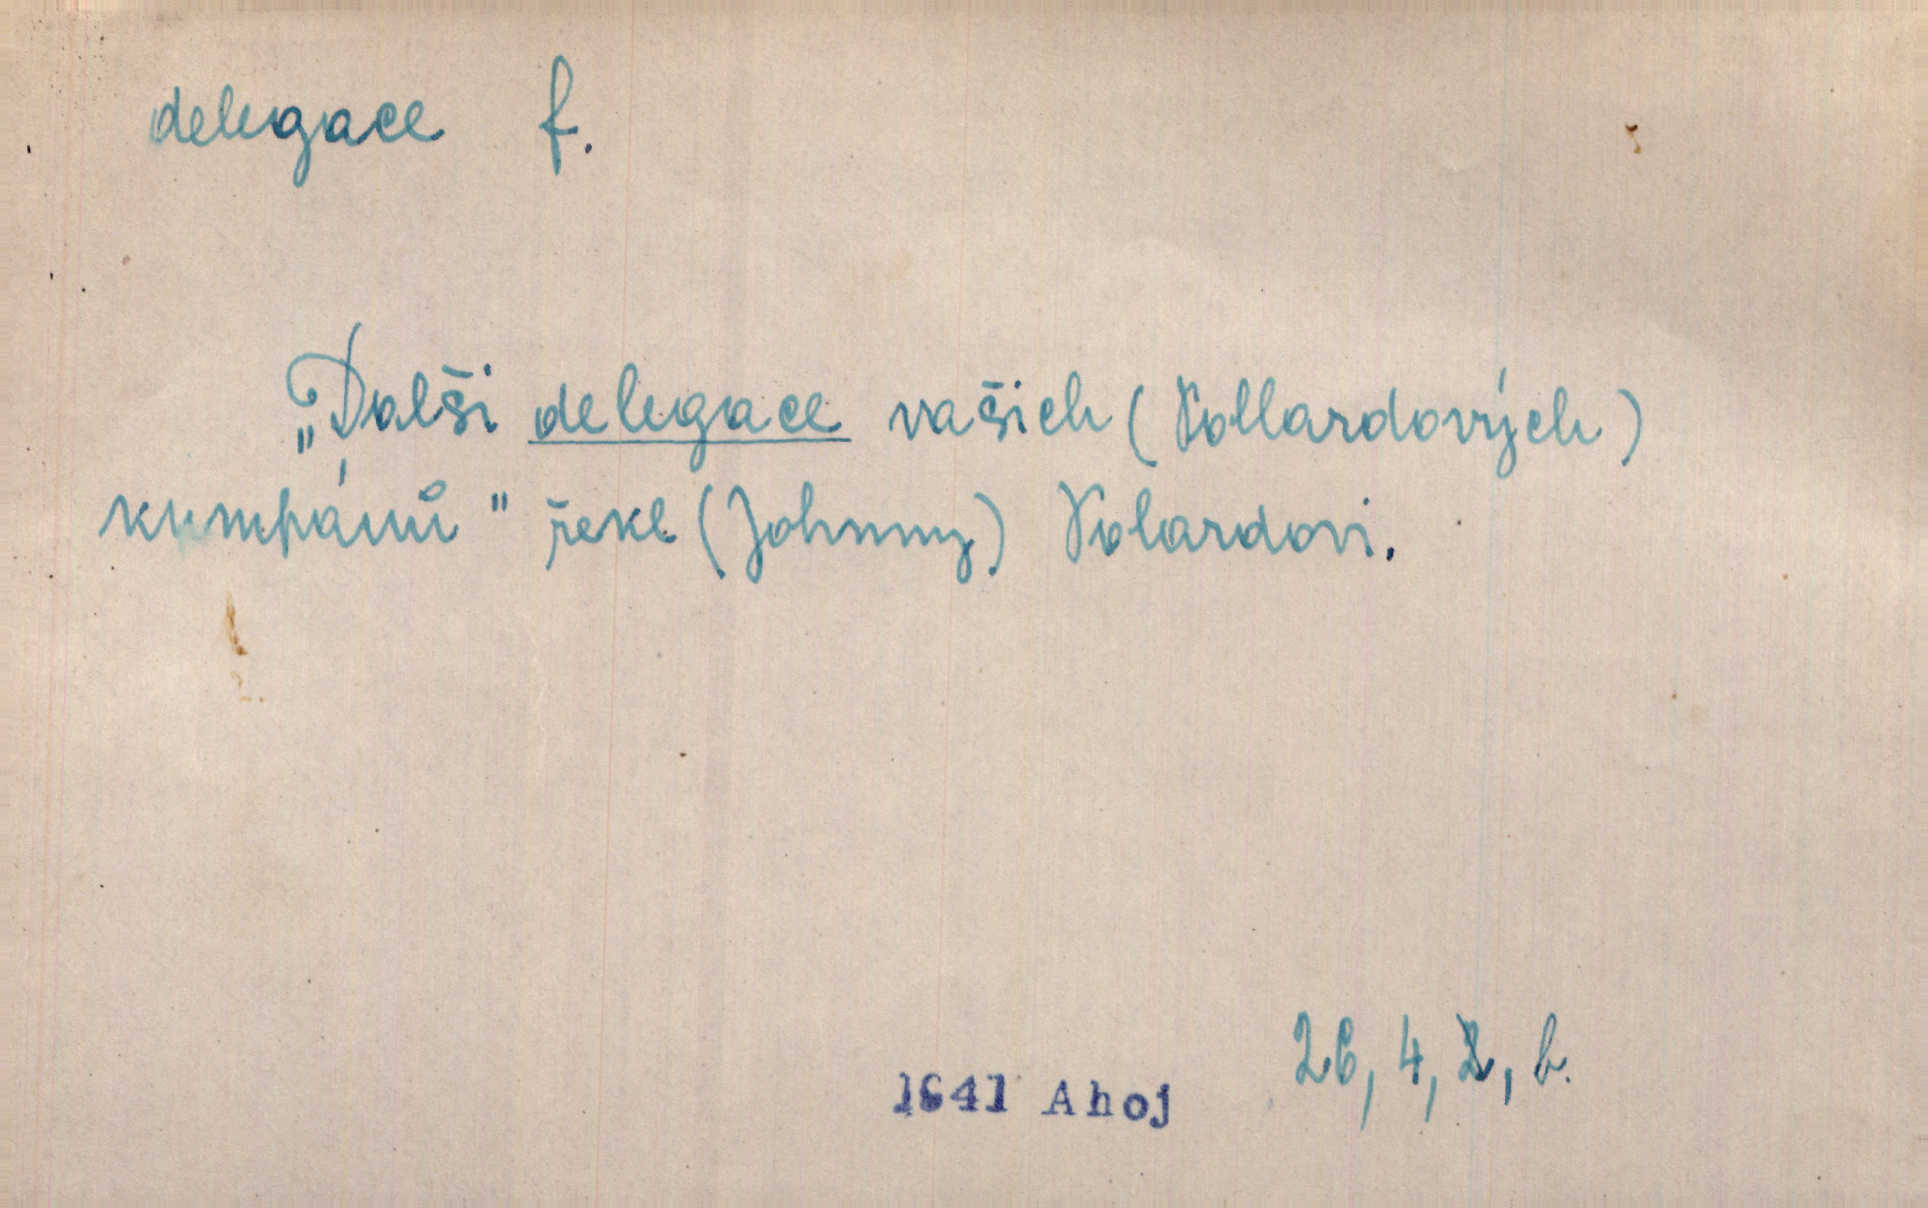 delegace f.
„Další delegace vašich (Vollardových)
kumpánů" řekl (Johnny) Volardovi.
1641 Ahoj 26, 4, 2, b.